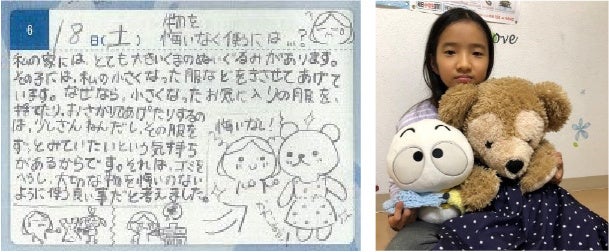 6
18日(土)
物を
悔いなく使うには…?
私の家には、とても大きいくまのぬいぐるみがあります。
その子には、私の小さくなった服などをきさせてあげて
います。なぜなら、小さくなったお気に入りの服を、
捨てたり、おさがりであげたりするの
は、少しざんねんだし、その服を
ずっとみていたいという気持ち
があるからです。それは、ゴミを
へらし、大切な物を悔いのない
ように使う良い事だと考えました。
悔いなし!
ove